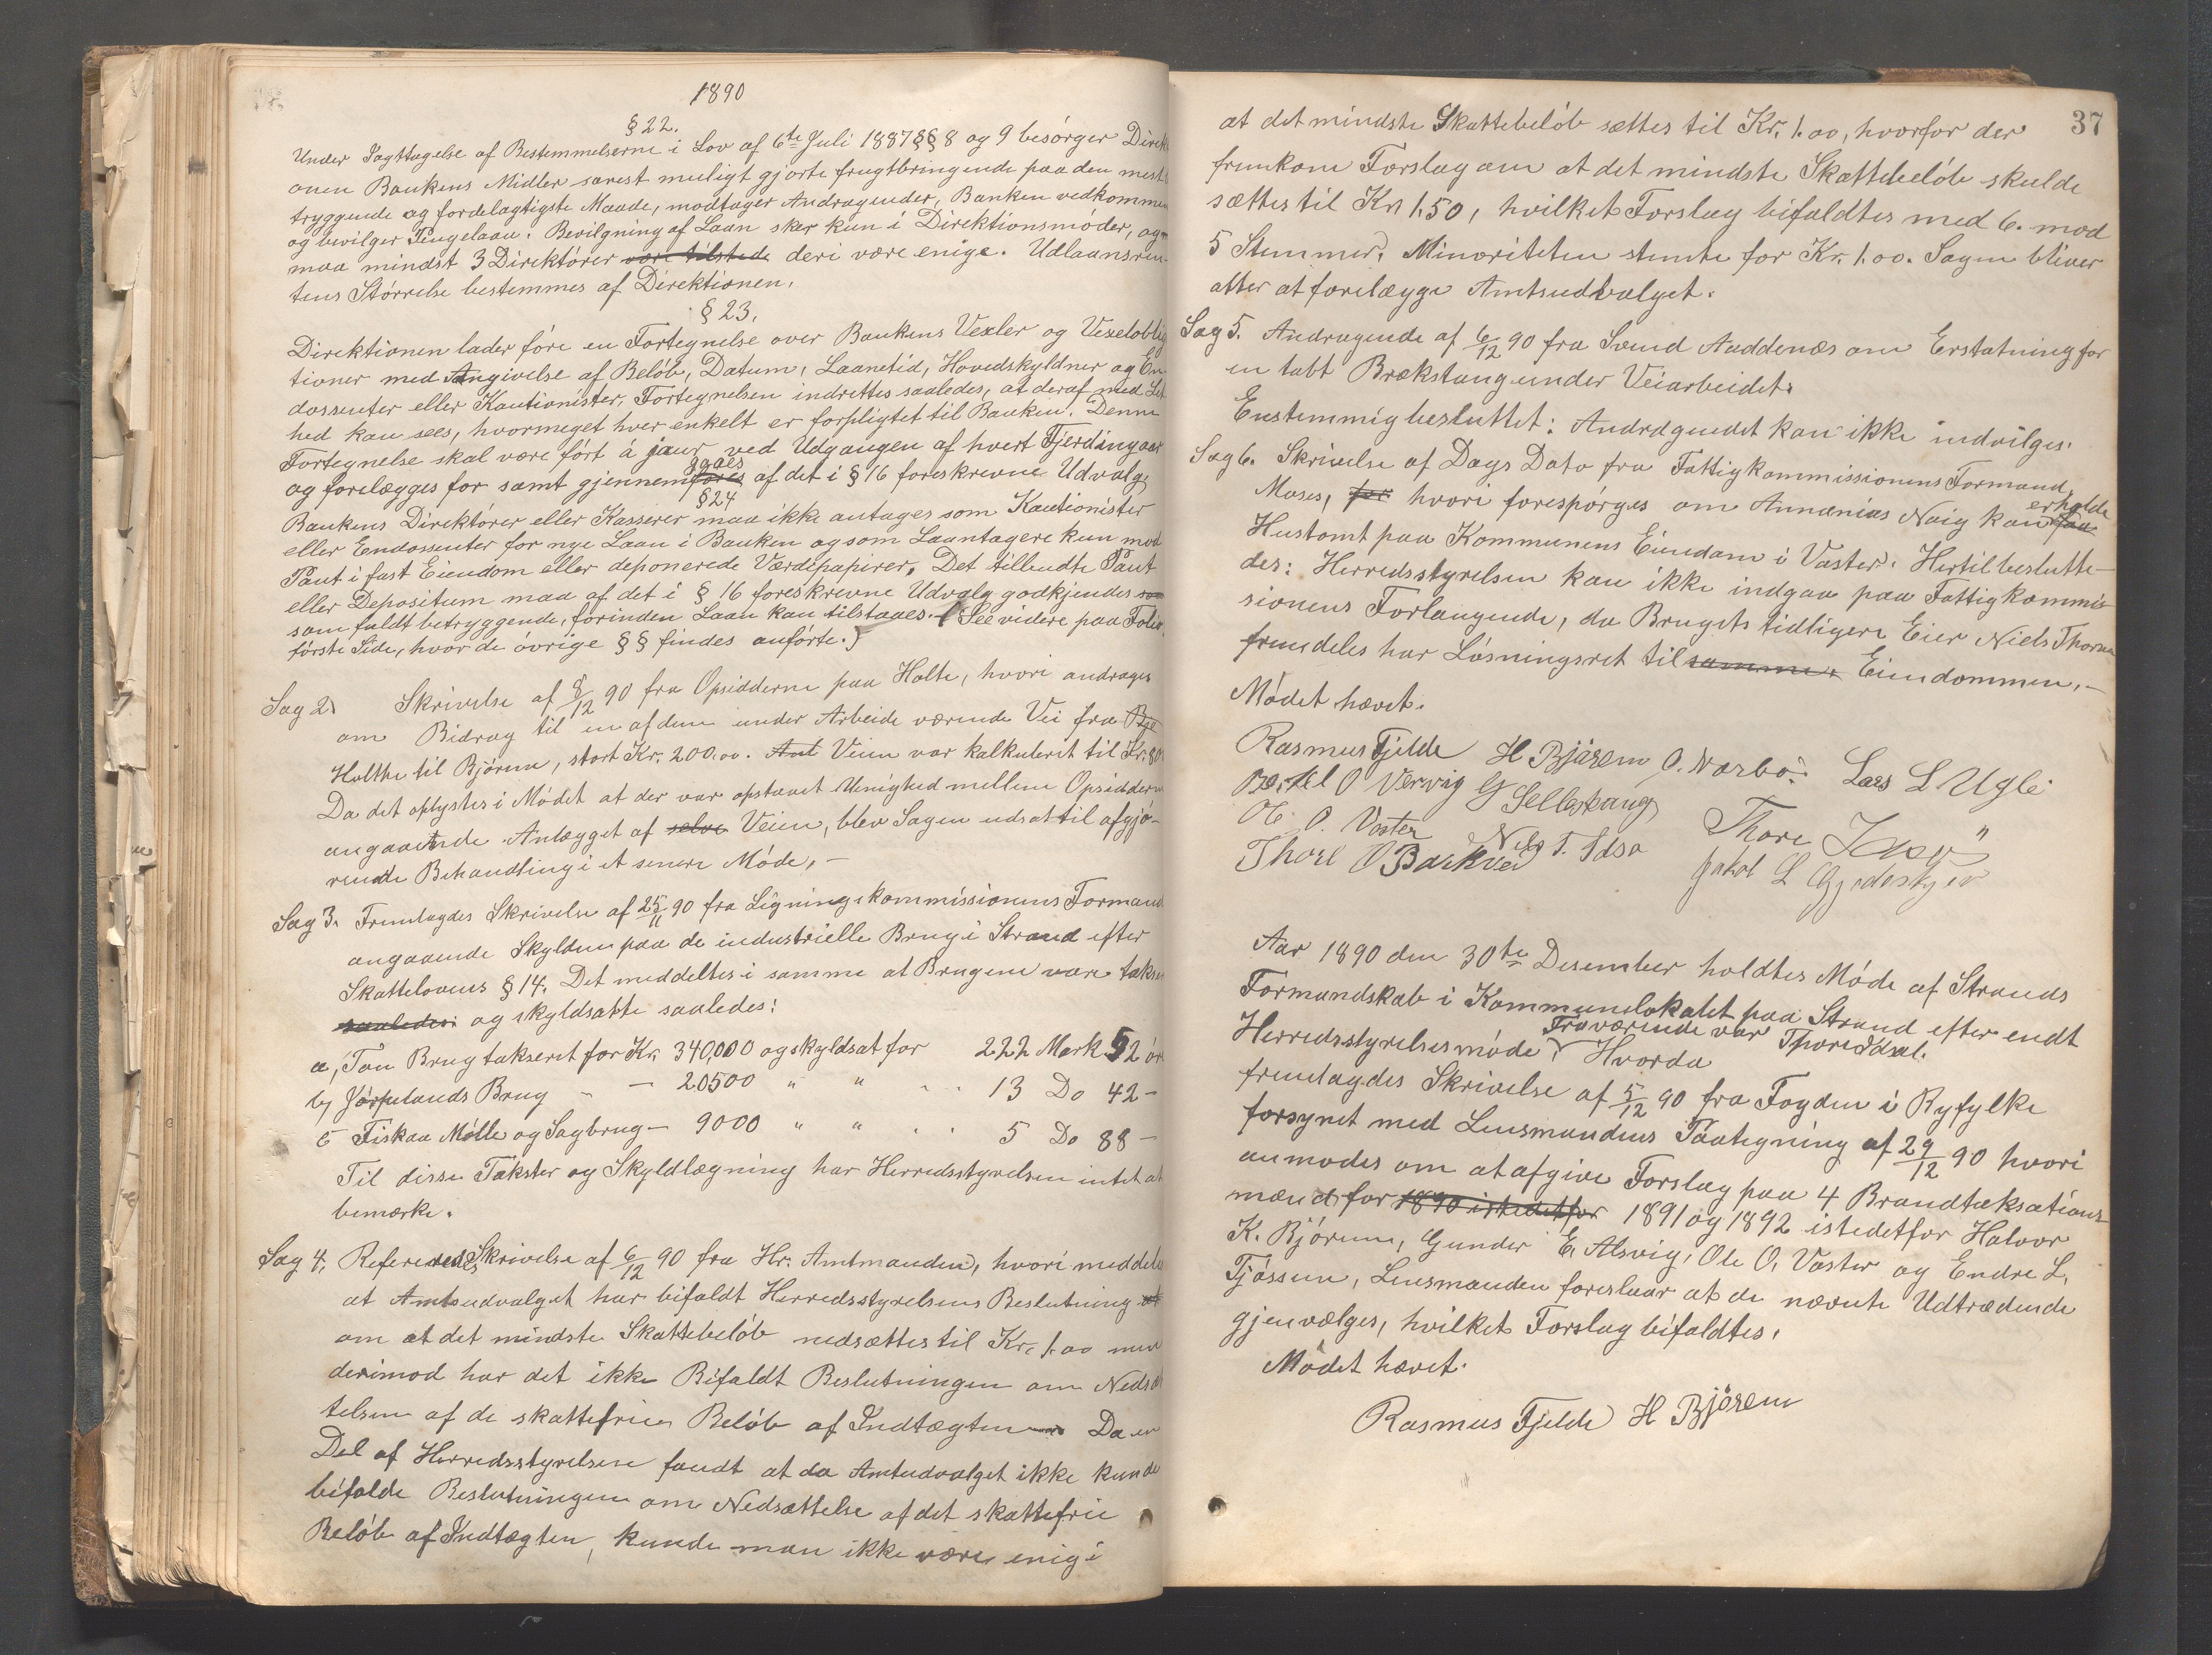 1890
§ 22.
Under Iagttagelse af Bestemmelserne i Lov af 6te Juli 1887 §§ 8 og 9 besørger Direk
onen Bankens Midler snarest muligt gjorte frugtbringende paa den mest
tryggende og fordelagtigste Maade, modtager Andragender, Banken vedkommen
og bevilger Pengelaan. Bevilgning af Laan sker kun i Direktionsmøder, og
maa mindst 3 Direktører være tilstede deri være enige. Udlaansren
tens Størrelse bestemmes af Direktionen.
§ 23.
Direktionen lader føre en Fortegnelse over Bankens Vexler og Vexeloblig
tioner med Angivelse af Beløb, Datum, Laanetid, Hovedskyldner og En
dossenter eller Kautionister. Fortegnelsen indrettes saaledes, at deraf med Let
hed kan sees, hvormeget hver enkelt er forpligtet til Banken. Denne
Fortegnelse skal være ført á jour ved Udgangen af hvert Fjerdingaar
gaaes
og forelægges for samt gjennemføres af det i § 16 foreskrevne Udvalg.
§ 24
Bankens Direktører eller Kasserer maa ikke antages som Kautionister
eller Endossenter for nye Laan i Banken og som Laantagere kun mod
Pant i fast Eiendom eller deponerede Værdipapirer. Det tilbudte Pant
eller Depositum maa af det i § 16 foreskrevne Udvalg godkjendes som
som fuldt betryggende, forinden Laan kan tilstaaes. (See videre paa Folio
første Side, hvor de øvrige §§ findes anførte.)
Sag 2. Skrivelse af 8/12 90 fra Opsidderne paa Holte, hvori andrages
om Bidrag til en af dem under Arbeide værende Vei fra Bjø
Holthe til Bjørem, stort Kr. 200.00. Anl Veien var kalkuleret til Kr. 80
Da det oplystes i Mødet at der var opstaaet Uenighed mellem Opsiddern
angaaende Anlægget af selve Veien, blev Sagen udsat til afgjø-
rende Behandling i et senere Møde. —
Sag 3. Fremlagdes Skrivelse af 25/11 90 fra Ligningskommissionens Formand
angaaende Skylden paa de industrielle Brug i Strand efter
Skattelovens § 14. Det meddeltes i samme at Brugene vare takser
saaledes: og skyldsatte saaledes:
a, Tau Brug takseret for Kr. 340,000 og skyldsat for 222 Mark 52 ør
b, Jørpelands Brug — — 20500 " " " " 13 Do 42 —
c Fiskaa Mølle og Sagbrug — 9000 " " " " 5 Do 88 —
Til disse Takster og Skyldlægning har Herredsstyrelsen intet at
bemærke.
Sag 4. Refereredes Skrivelse af 6/12 90 fra Hr. Amtmanden, hvori meddeles
at Amtsudvalget har bifaldt Herredsstyrelsens Beslutning at
om at det mindste Skattebeløb nedsættes til Kr. 1.00 men
derimod har det ikke Bifaldt Beslutningen om Nedsæt
telsen af de skattefrie Beløb af Indtægten Da en
Del af Herredsstyrelsen fandt at da Amtudvalget ikke kunde
bifalde Beslutningen om Nedsættelse af det skattefrie
Beløb af Indtægten, kunde man ikke være enig i
37
at det mindste Skattebeløb sættes til Kr. 1.00, hvorfor der
fremkom Forslag om at det mindste Skattebeløb skulde
sættes til Kr. 1.50, hvilket Forslag bifaldtes med 6. mod
5 Stemmer. Minoriteten stemte for Kr. 1.00. Sagen bliver
atter at forelægge Amtsudvalget.
Sag 5. Andragende af 6/12 90 fra Svend Auddenæs om Erstatning for
en tabt Brækstang under Veiarbeidet.
Enstemmig besluttet: Andragendet kan ikke indvilges.
Sag 6. Skrivelse af Dags Dato fra Fattigkommissionens Formand,
erholde
Moses, for hvori forespørges om Annanias Naig kan faa
Hustomt paa Kommunens Eiendom i Vaster. Hertil beslutte-
des: Herredsstyrelsen kan ikke indgaa paa Fattigkommis-
sionens Forlangende, da Brugets tidligere Eier Niels Thorsn
fremdeles har Løsningsret til samme. Eiendommen. —
Mødet hævet.
Rasmus Fjelde H Bjørem O. Nærbø. Lars L Ugle
O Vervig
Ole O. Vaster Niels T. Idsø Thore
Thore O Barkved Jakob L Gjedeskjær
Aar 1890 den 30te Desember holdtes Møde af Strands
Formandskab i Kommunelokalet paa Strand efter endt
Fraværende var Thore Idsal.
Herredsstyrelsesmøde. Hvorda
fremlagdes Skrivelse af 5/12 90 fra Fogden i Ryfylke
forsynet med Lensmandens Paategning af 29/12 90 hvori
anmodes om at afgive Forslag paa 4 Brandtaksations-
mænd for 1890 istedetfor 1891 og 1892 istedetfor Halvor
K. Bjørem, Gunder E. Alsvig, Ole O. Vaster og Endre L.
Tjøssem, Lensmanden foreslaar at de nævnte Udtrædende
gjenvælges, hvilket Forslag bifaldtes.
Mødet hævet.
Rasmus Fjelde H Bjørem